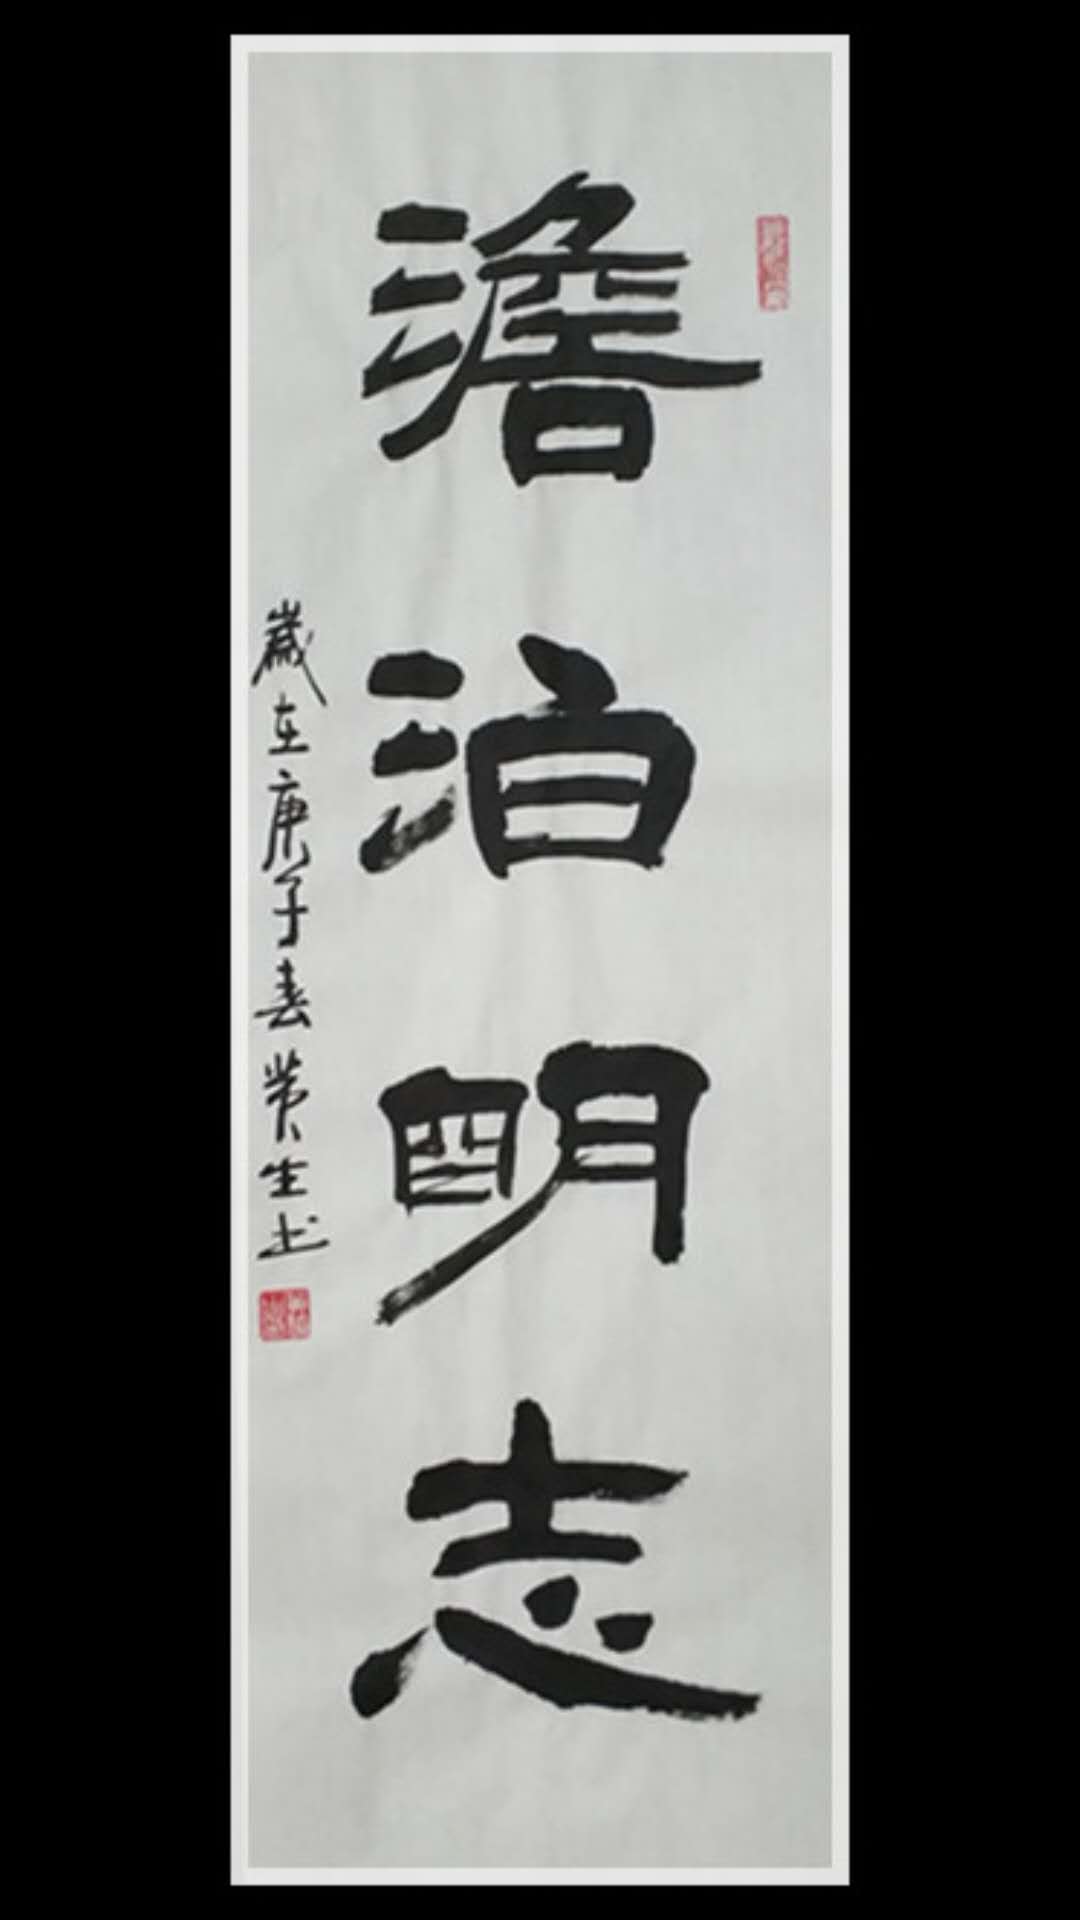 澹泊明志
歲在庚子春黄生书